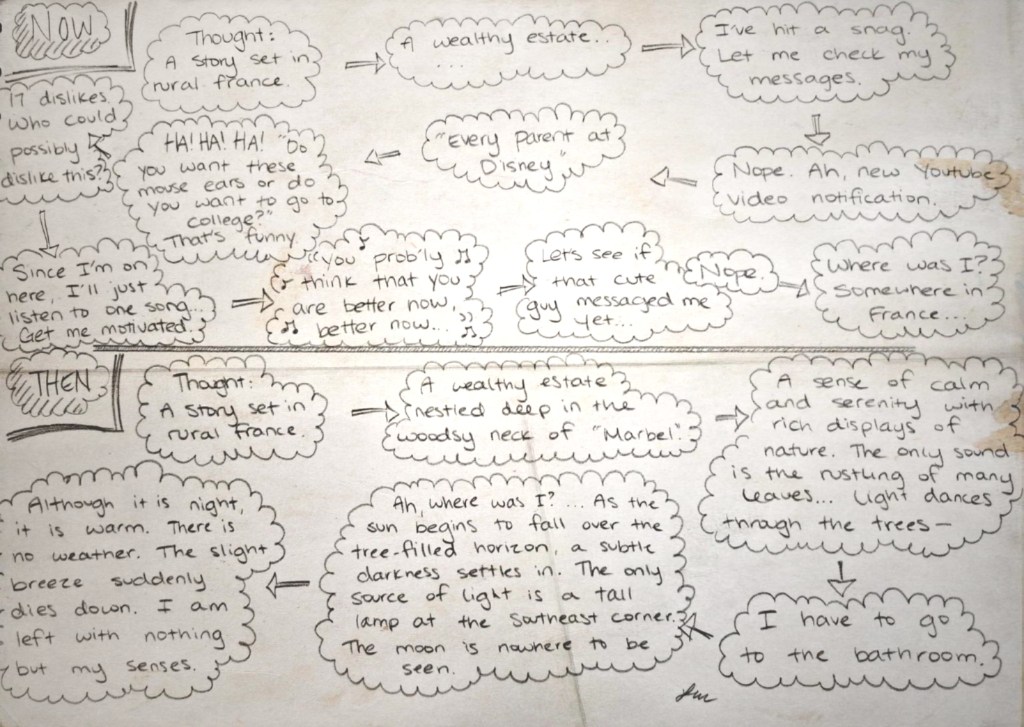 NOW
Thought:
A story set in
rural france.
A wealthy estate..
...
I've hit a snag.
Let me check my
messages.
Nope. Ah, new Youtube
video notification.
"Every parent at
Disney"
HA! HA! HA! "Do
you want these
mouse ears or do
you want to go to
college?"
That's funny.
17 dislikes.
Who could
possibly
dislike this??
Since I'm on
here, I'll just
listen to one song...
Get me motivated.
"you prob'ly
think that you
are better now,
better now..."
Let's see if
that cute
guy messaged me
yet...
Nope.
Where was I?
Somewhere in
France...
THEN
Thought:
A story set in
rural France.
A wealthy estate
nestled deep in the
woodsy neck of "Marbel".
A sense of calm
and serenity with
rich displays of
nature. The only sound
is the rustling of many
leaves... Light dances
through the trees—
I have to go
to the bathroom.
Ah, where was I? ... As the
sun begins to fall over the
tree-filled horizon, a subtle
darkness settles in. The only
source of light is a tall
lamp at the Southeast corner.
The moon is nowhere to be
seen.
Although it is night,
it is warm. There is
no weather. The slight
breeze suddenly
dies down. I am
left with nothing
but my senses.